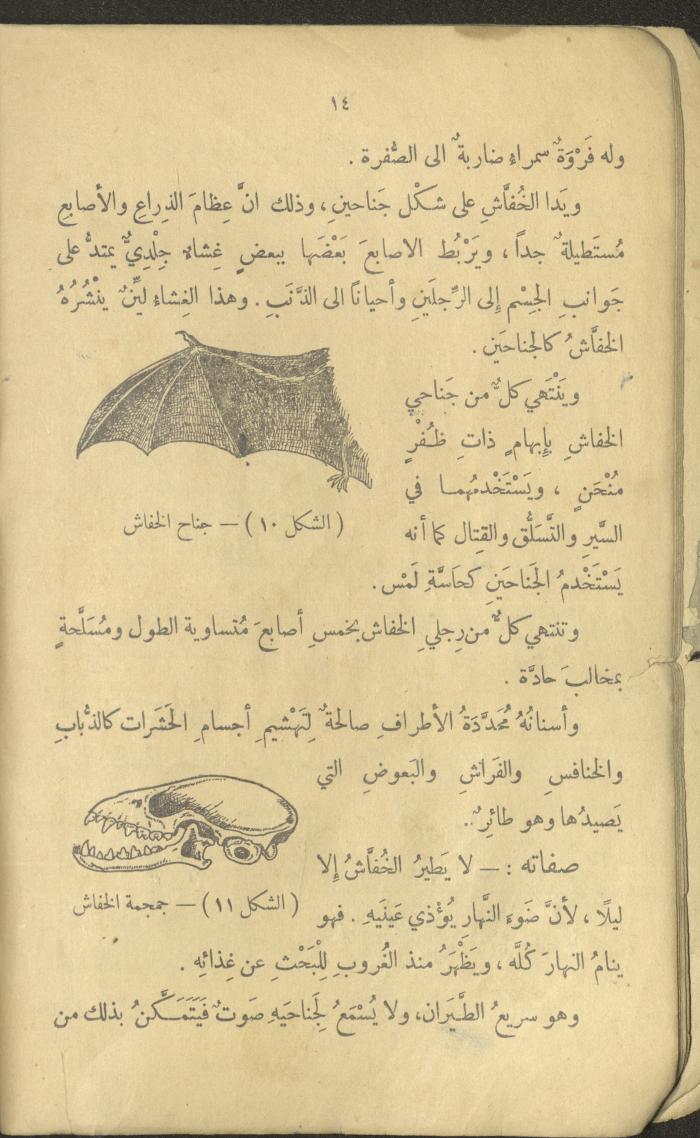 ١٤
وله فَرْوَةٌ سمراء ضاربةٌ الى الصُّفرة .
ويَدا الخُفَّاشِ على شكْل جَناحينِ ، وذلك انَّ عِظامَ الذِراعِ والأصابعِ
مُستَطيلةٌ جداً ، ويَرْبُط الاصابعَ بَعْضَها ببعضٍ غِشاءٌ جِلْدِيٌّ يمتدُّ على
جَوانبِ الجِسْم إلى الرِّجلَينِ وأحياناً الى الذَّنَبِ . وهذا الغِشاء ليّنٌ ينْشُرُهُ
الخفَّاشُ كالجناحَينِ .
ويَنْتَهي كلٌّ من جَناحي
الخفاشِ بإبهامٍ ذاتِ ظُفْرٍ
مُنْحَنٍ ، ويَسْتَخْدمُهما في
السَّيرِ والتَّسَلُّق والقِتال كما أنه
( الشكل ١٠ ) — جناح الخفاش
يَسْتَخْدمُ الجَناحَينِ كحَاسَّةِ لَمْس .
وتنتهي كلٌّ من رِجلي الخفاش بخمسِ أصابعَ مُتساوية الطول ومُسَلَّحةٍ
بمخالبَ حادَّة .
وأسنانُهُ مُحَدَّدَةُ الأطرافِ صالحةٌ لِتَهْشيمِ أجسامِ الحَشَرات كالذُّبابِ
والخنافسِ والفَراشِ والبَعوضِ التي
يَصيدُها وهو طائرٌ .
صفاته : — لا يَطيرُ الخُفَّاشُ إلا
ليلًا ، لأنَّ ضَوءَ النَّهار يُؤْذي عَينَيهِ . فهو
( الشكل ١١ ) — جمجمة الخفاش
ينامُ النهارَ كُلَّه ، ويَظْهَرُ منذ الغُروبِ لِلْبَحْثِ عن غِذائه .
وهو سريعُ الطَّيَران، ولا يُسْمَعُ لِجَناحَيهِ صَوتٌ فَيَتَمَكَّنُ بذلك من